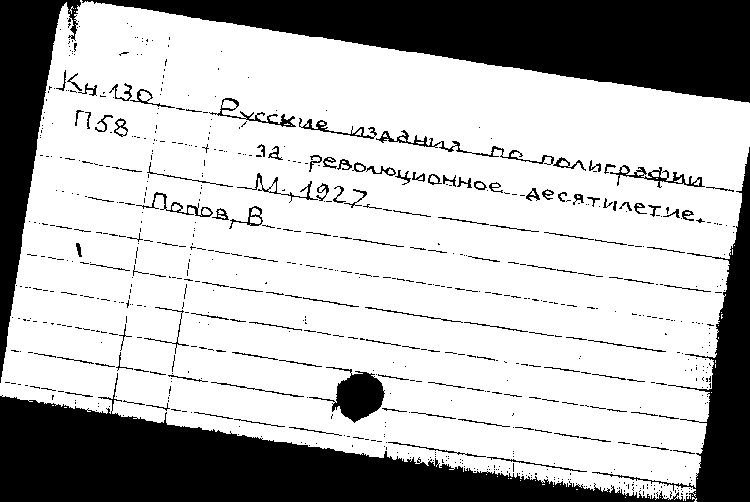 Кн.130
П58
Русские издания по полиграфии
за революционное десятилетие.
М., 1927.
Попов, В